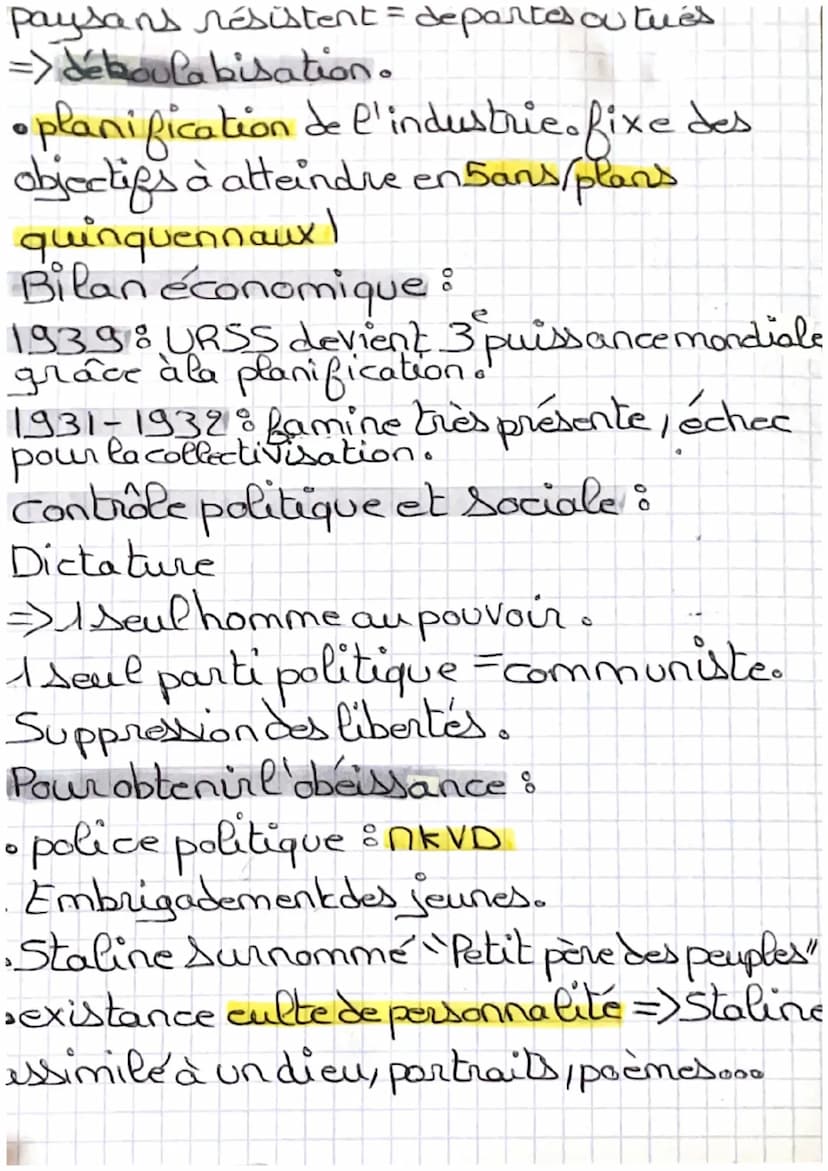 paysans résistent = déportés ou tués
=> dékoulakisation.
• planification de l'industrie. fixe des
objectifs à atteindre en 5ans (plans
quinquennaux)
Bilan économique :
1939 : URSS devient 3e puissance mondiale
grâce à la planification.
1931-1932 : famine très présente, échec
pour la collectivisation.
Contrôle politique et sociale :
Dictature
=> 1 seul homme au pouvoir.
1 seul parti politique = communiste.
Suppression des libertés.
Pour obtenir l'obéissance :
• police politique : NKVD
. Embrigadement des jeunes.
. Staline surnommé "Petit père des peuples"
• existance culte de personnalité => Staline
assimilé à un dieu, portraits, poèmes...